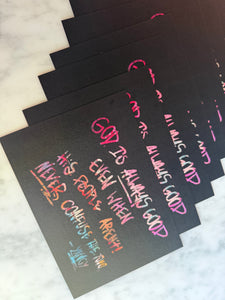 GOD IS ALWAYS GOOD
EVEN WHEN
HIS PEOPLE AREN'T!
NEVER CONFUSE THE TWO
ALWAYS GOOD
ALWAYS GOOD
ALWAYS GOOD